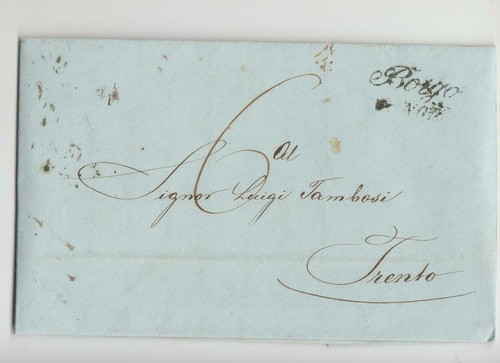 Borgo
Nov
6
Al
Signor Luigi Tambosi
Trento